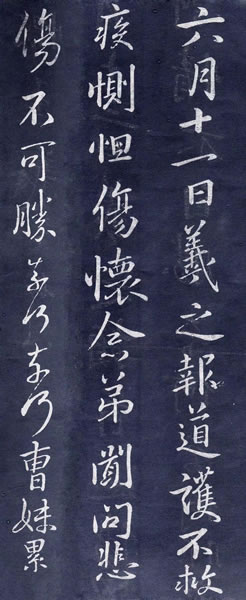 六月十一日羲之報道護不救
疾惻怛傷懷念弟聞問悲
傷不可勝奈何奈何曹妹累